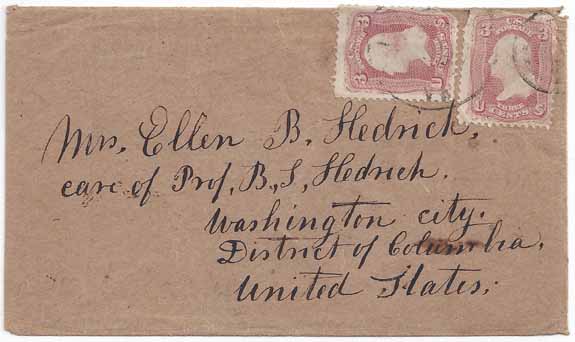 Mrs. Ellen B. Hedrick,
care of Prof. B. S. Hedrick.
Washington city.
District of Columbia.
United States.
3 3
THREE
CENTS